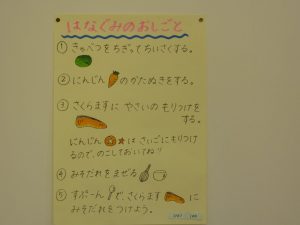 はなぐみのおしごと
① きゃべつをちぎってちいさくする。
② にんじん のかたぬきをする。
③ さくらますに やさいのもりつけを
する。
にんじん は さいごにもりつけ
るので、のこしておいてね!!
④ みそだれをまぜる
⑤ すぷーん で、さくらます に
みそだれをつけよう。